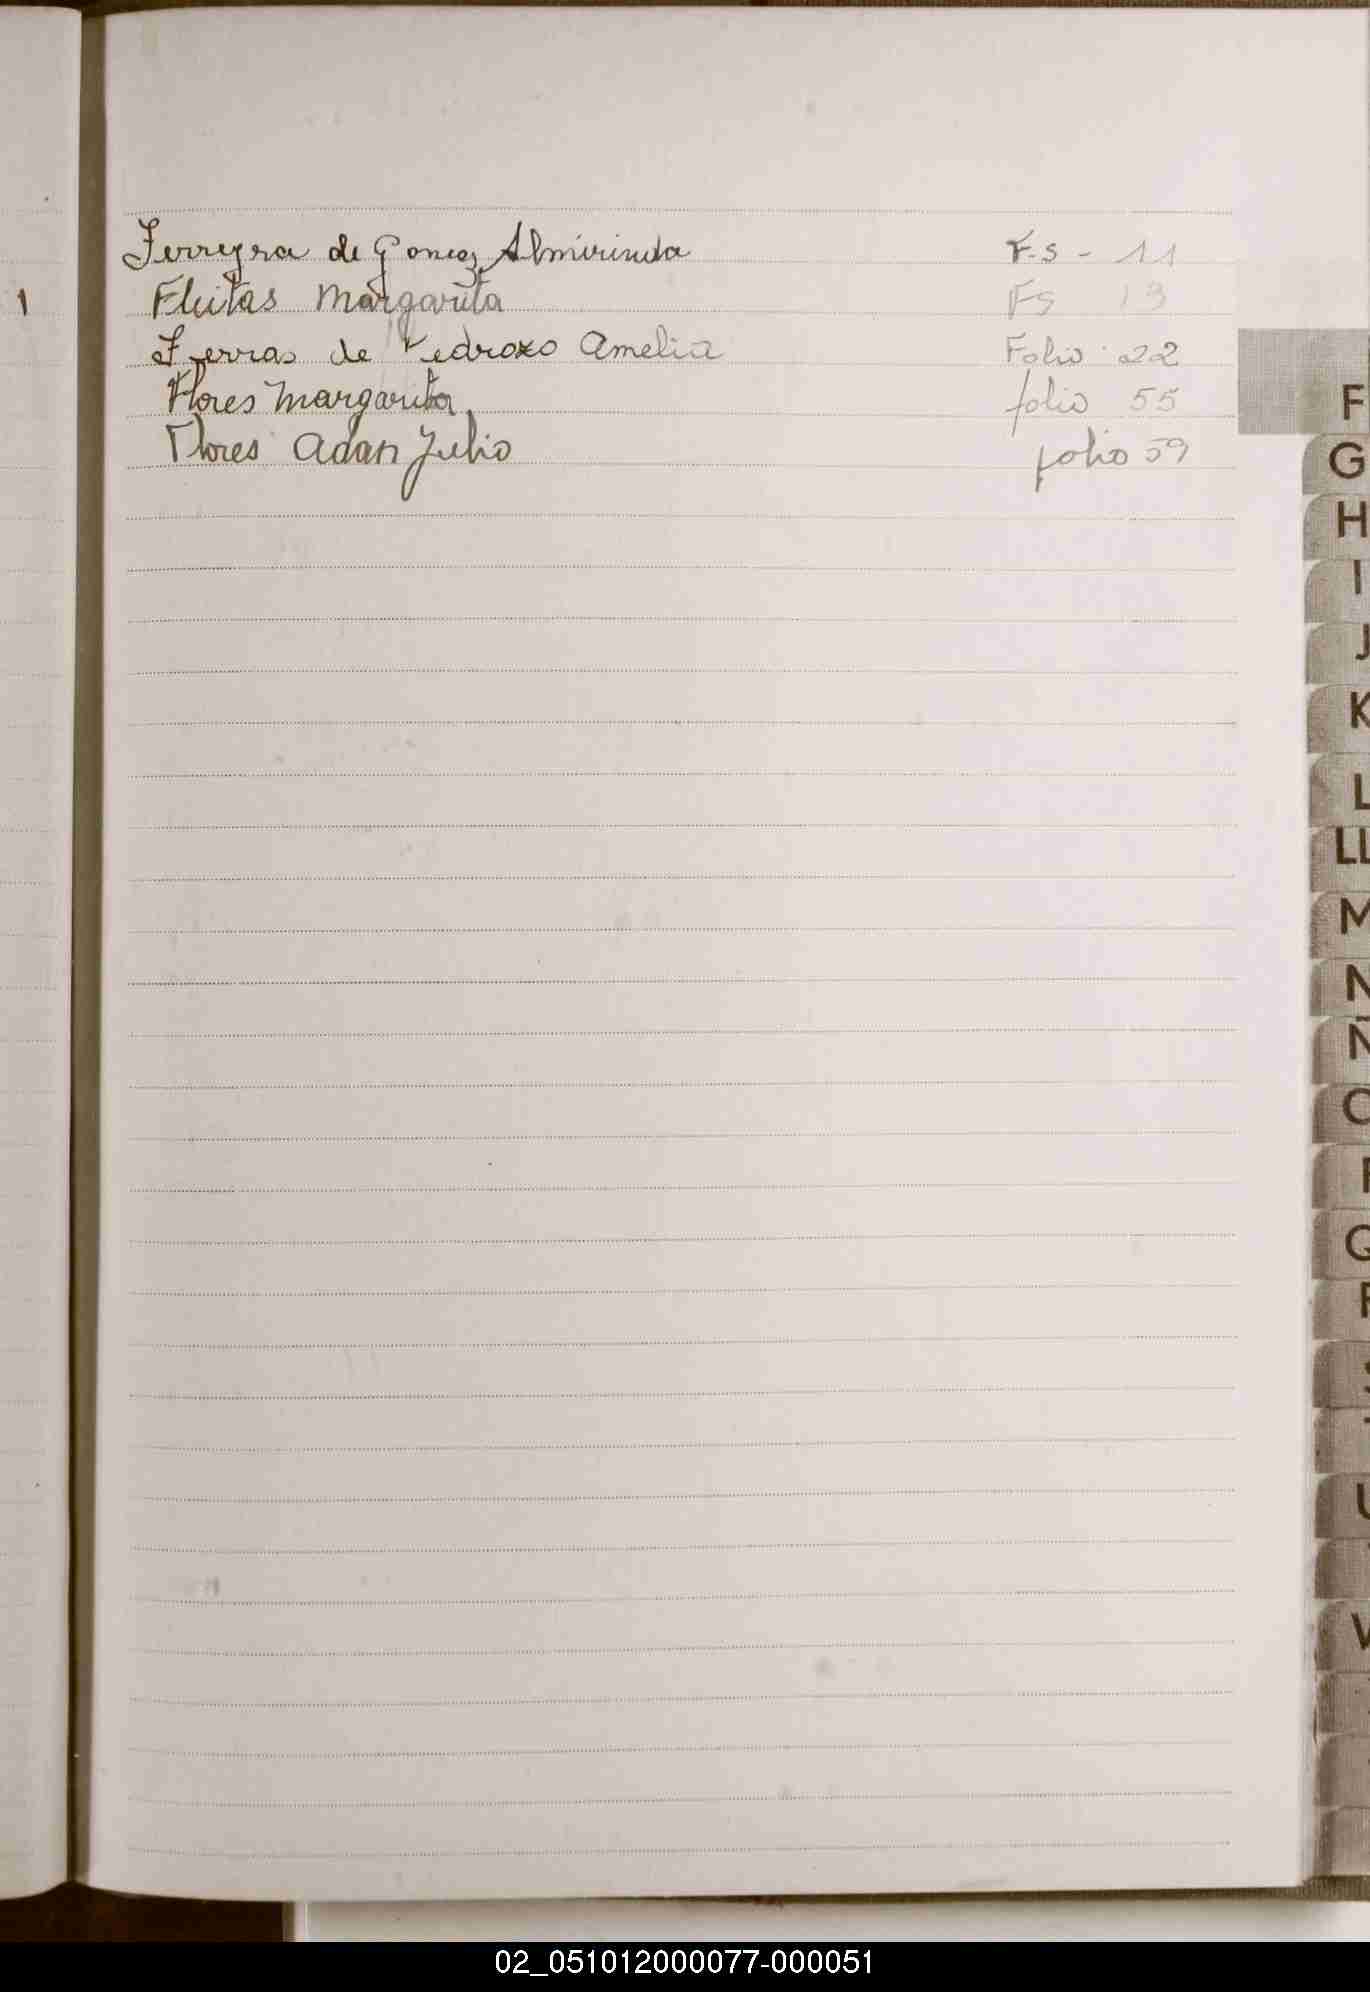 Ferreyra de Gomez Almirinda F-S - 11
1
Fleitas Margarita FS 13
Ferras de Pedrozo Amelia Folio 22
Flores Margarita folio 55
Flores Adan Julio folio 59
F
G
H
I
J
K
L
LL
M
N
Ñ
O
P
Q
R
S
T
U
V
02_051012000077-000051